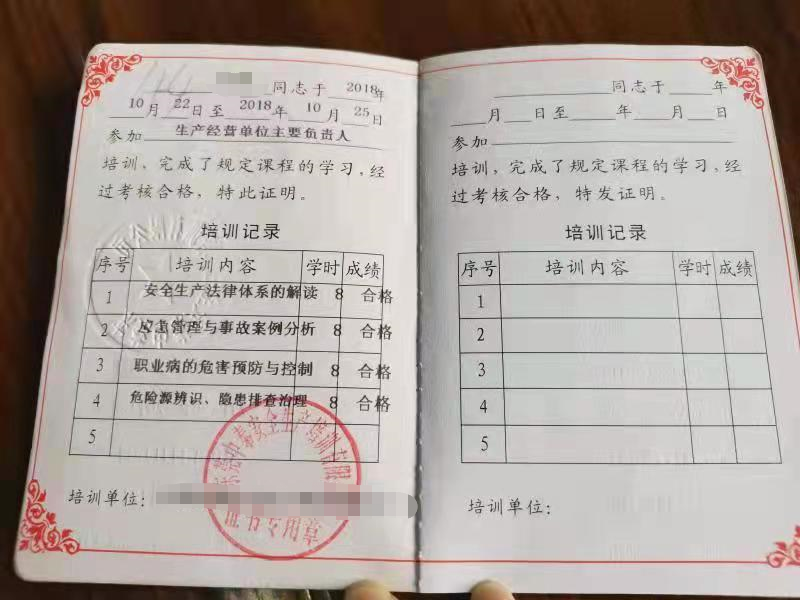 同志于 2018年
10月22日至2018年10月25日
参加 生产经营单位主要负责人
培训、完成了规定课程的学习,经
过考核合格，特此证明。
培训记录
序号 培训内容 学时 成绩
1 安全生产法律体系的解读 8 合格
2 应急管理与事故案例分析 8 合格
3 职业病的危害预防与控制 8 合格
4 危险源辨识、隐患排查治理 8 合格
5
培训单位:
同志于 年
月 日至 年 月 日
参加
培训，完成了规定课程的学习、经
过考核合格，特发证明。
培训记录
序号 培训内容 学时 成绩
1
2
3
4
5
培训单位: